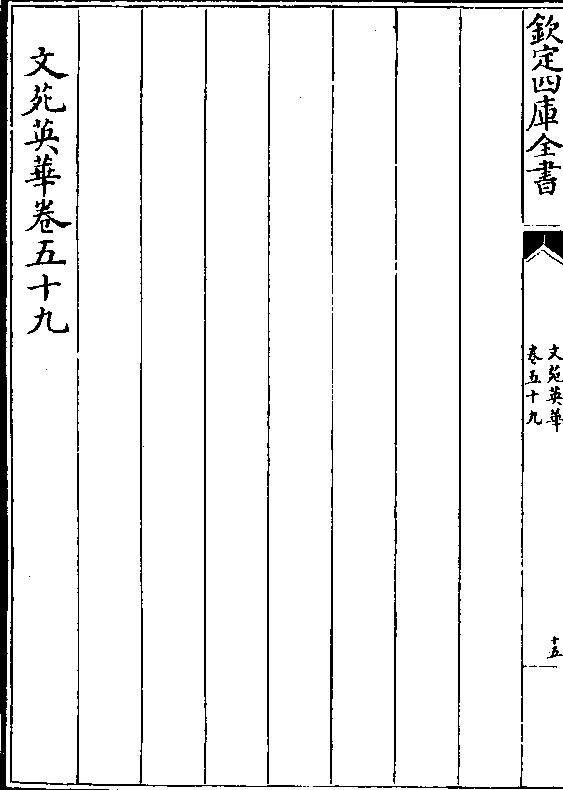 欽定四庫全書
文苑英華
卷五十九
十五
文苑英華卷五十九